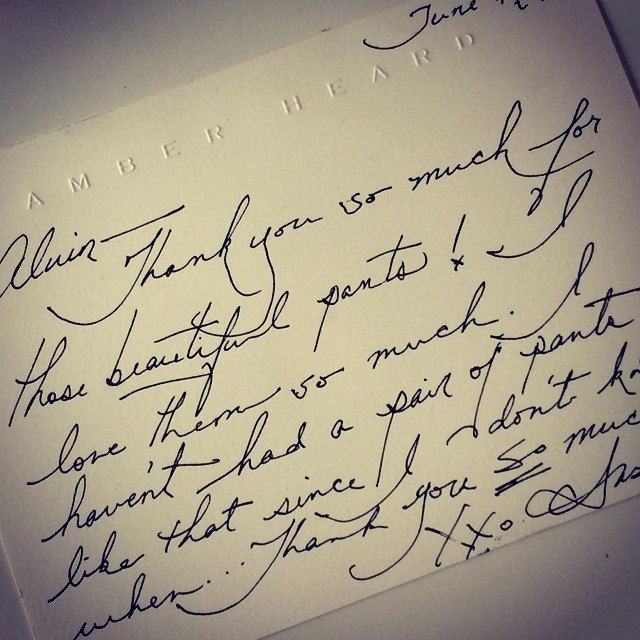 June
AMBER HEARD
Alvin - Thank you so much for
those beautiful pants! I
love them so much. I
haven't had a pair of pants
like that since I don't
when... Thank you so
xxo